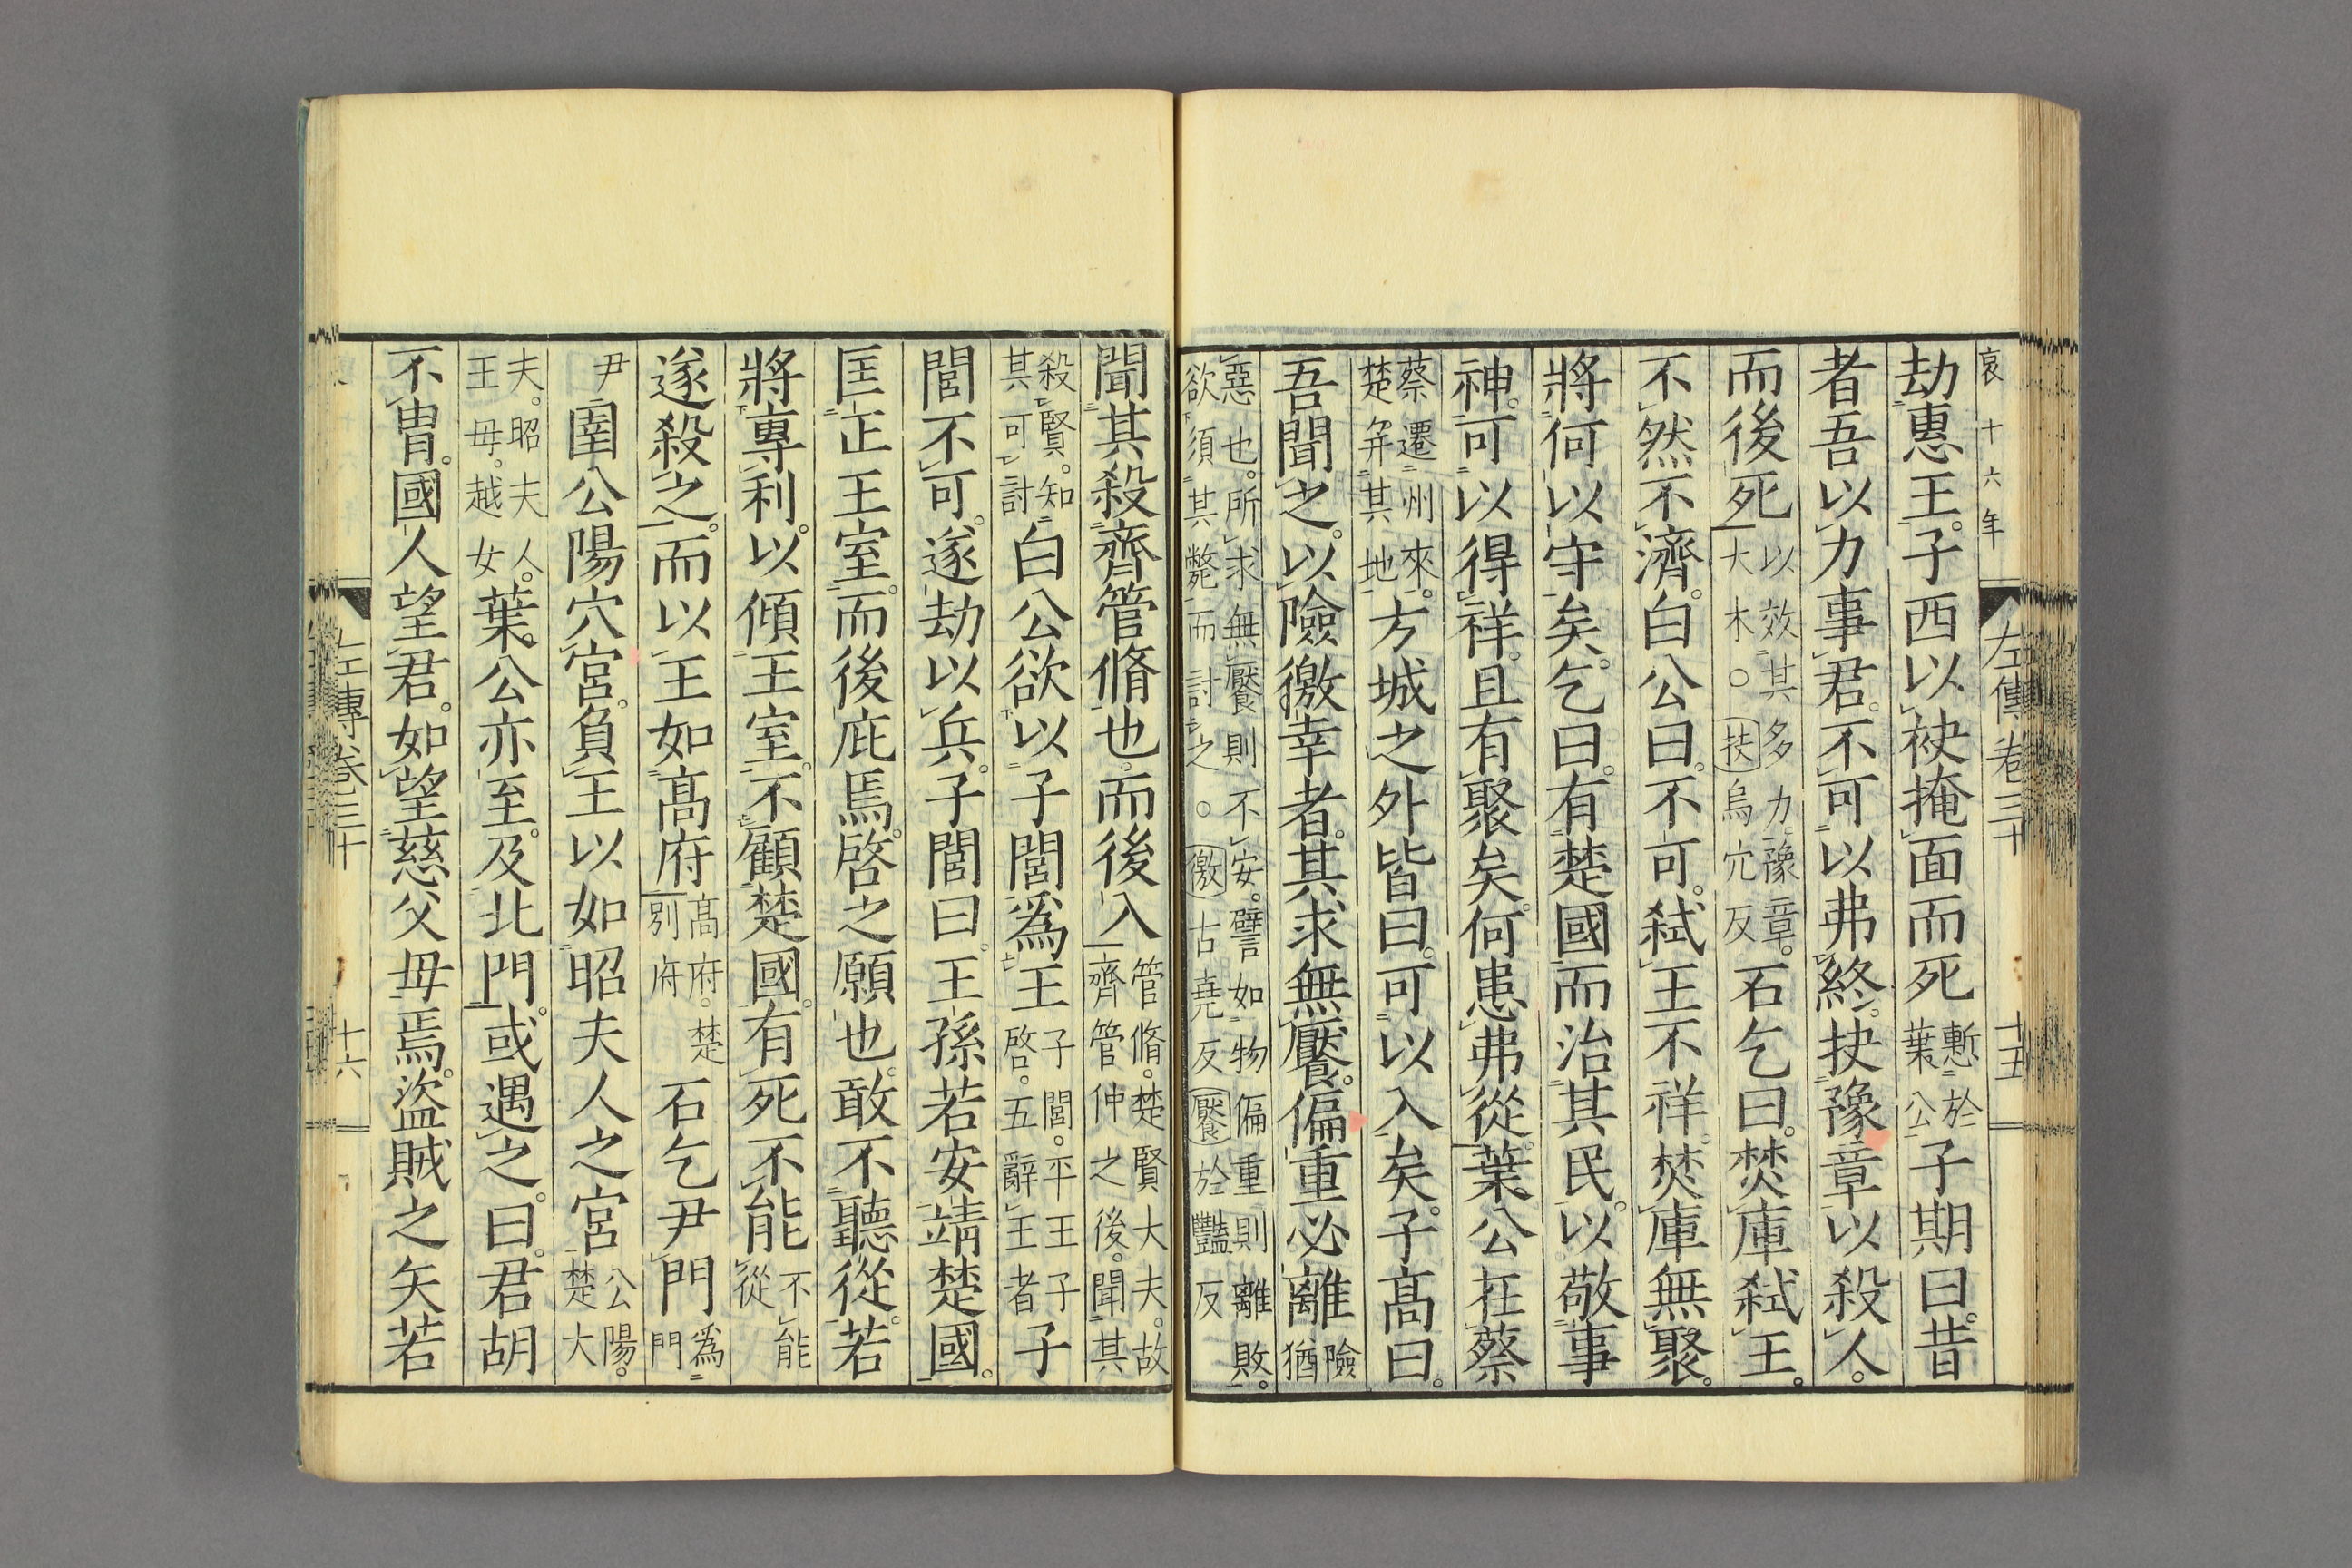 哀十六年
左傳卷三十 十五
劫惠王。子西以袂掩面而死慙於葉公子期曰。昔
者吾以力事君。不可以弗終。抉豫章以殺人。
而後死以效其多力。豫章。大木。○抉烏宂反石乞曰。焚庫弑王。
不然不濟。白公曰。不可。弑王不祥。焚庫無聚。
將何以守矣。乞曰。有楚國而治其民。以敬事
神。可以得祥。且有聚矣。何患弗從。葉公在蔡
蔡遷州來。楚并其地方城之外皆曰。可以入矣。子高曰。
吾聞之。以險徼幸者。其求無饜。偏重必離險猶
惡也。所求無饜則不安。譬如物偏重則離敗。
欲須其斃而討之。○徼古堯反饜於豔反
聞其殺齊管脩也。而後入管脩。楚賢大夫。故齊管仲之後。聞其
殺賢。知其可討白公欲以子閭爲王子閭。平王子啓。五辭王者子
閭不可。遂劫以兵。子閭曰。王孫若安靖楚國。
匡正王室。而後庇焉。啓之願也。敢不聽從。若
將專利。以傾王室。不顧楚國。有死不能不能從
遂殺之。而以王如高府高府。楚別府石乞尹門爲門
尹圉公陽穴宮。負王以如昭夫人之宮公陽。楚大
夫。昭夫人。王母。越女葉。公亦至。及北門。或遇之。曰。君胡
不冑。國人望君。如望慈父母焉。盜賊之矢若
左傳卷三十 十六